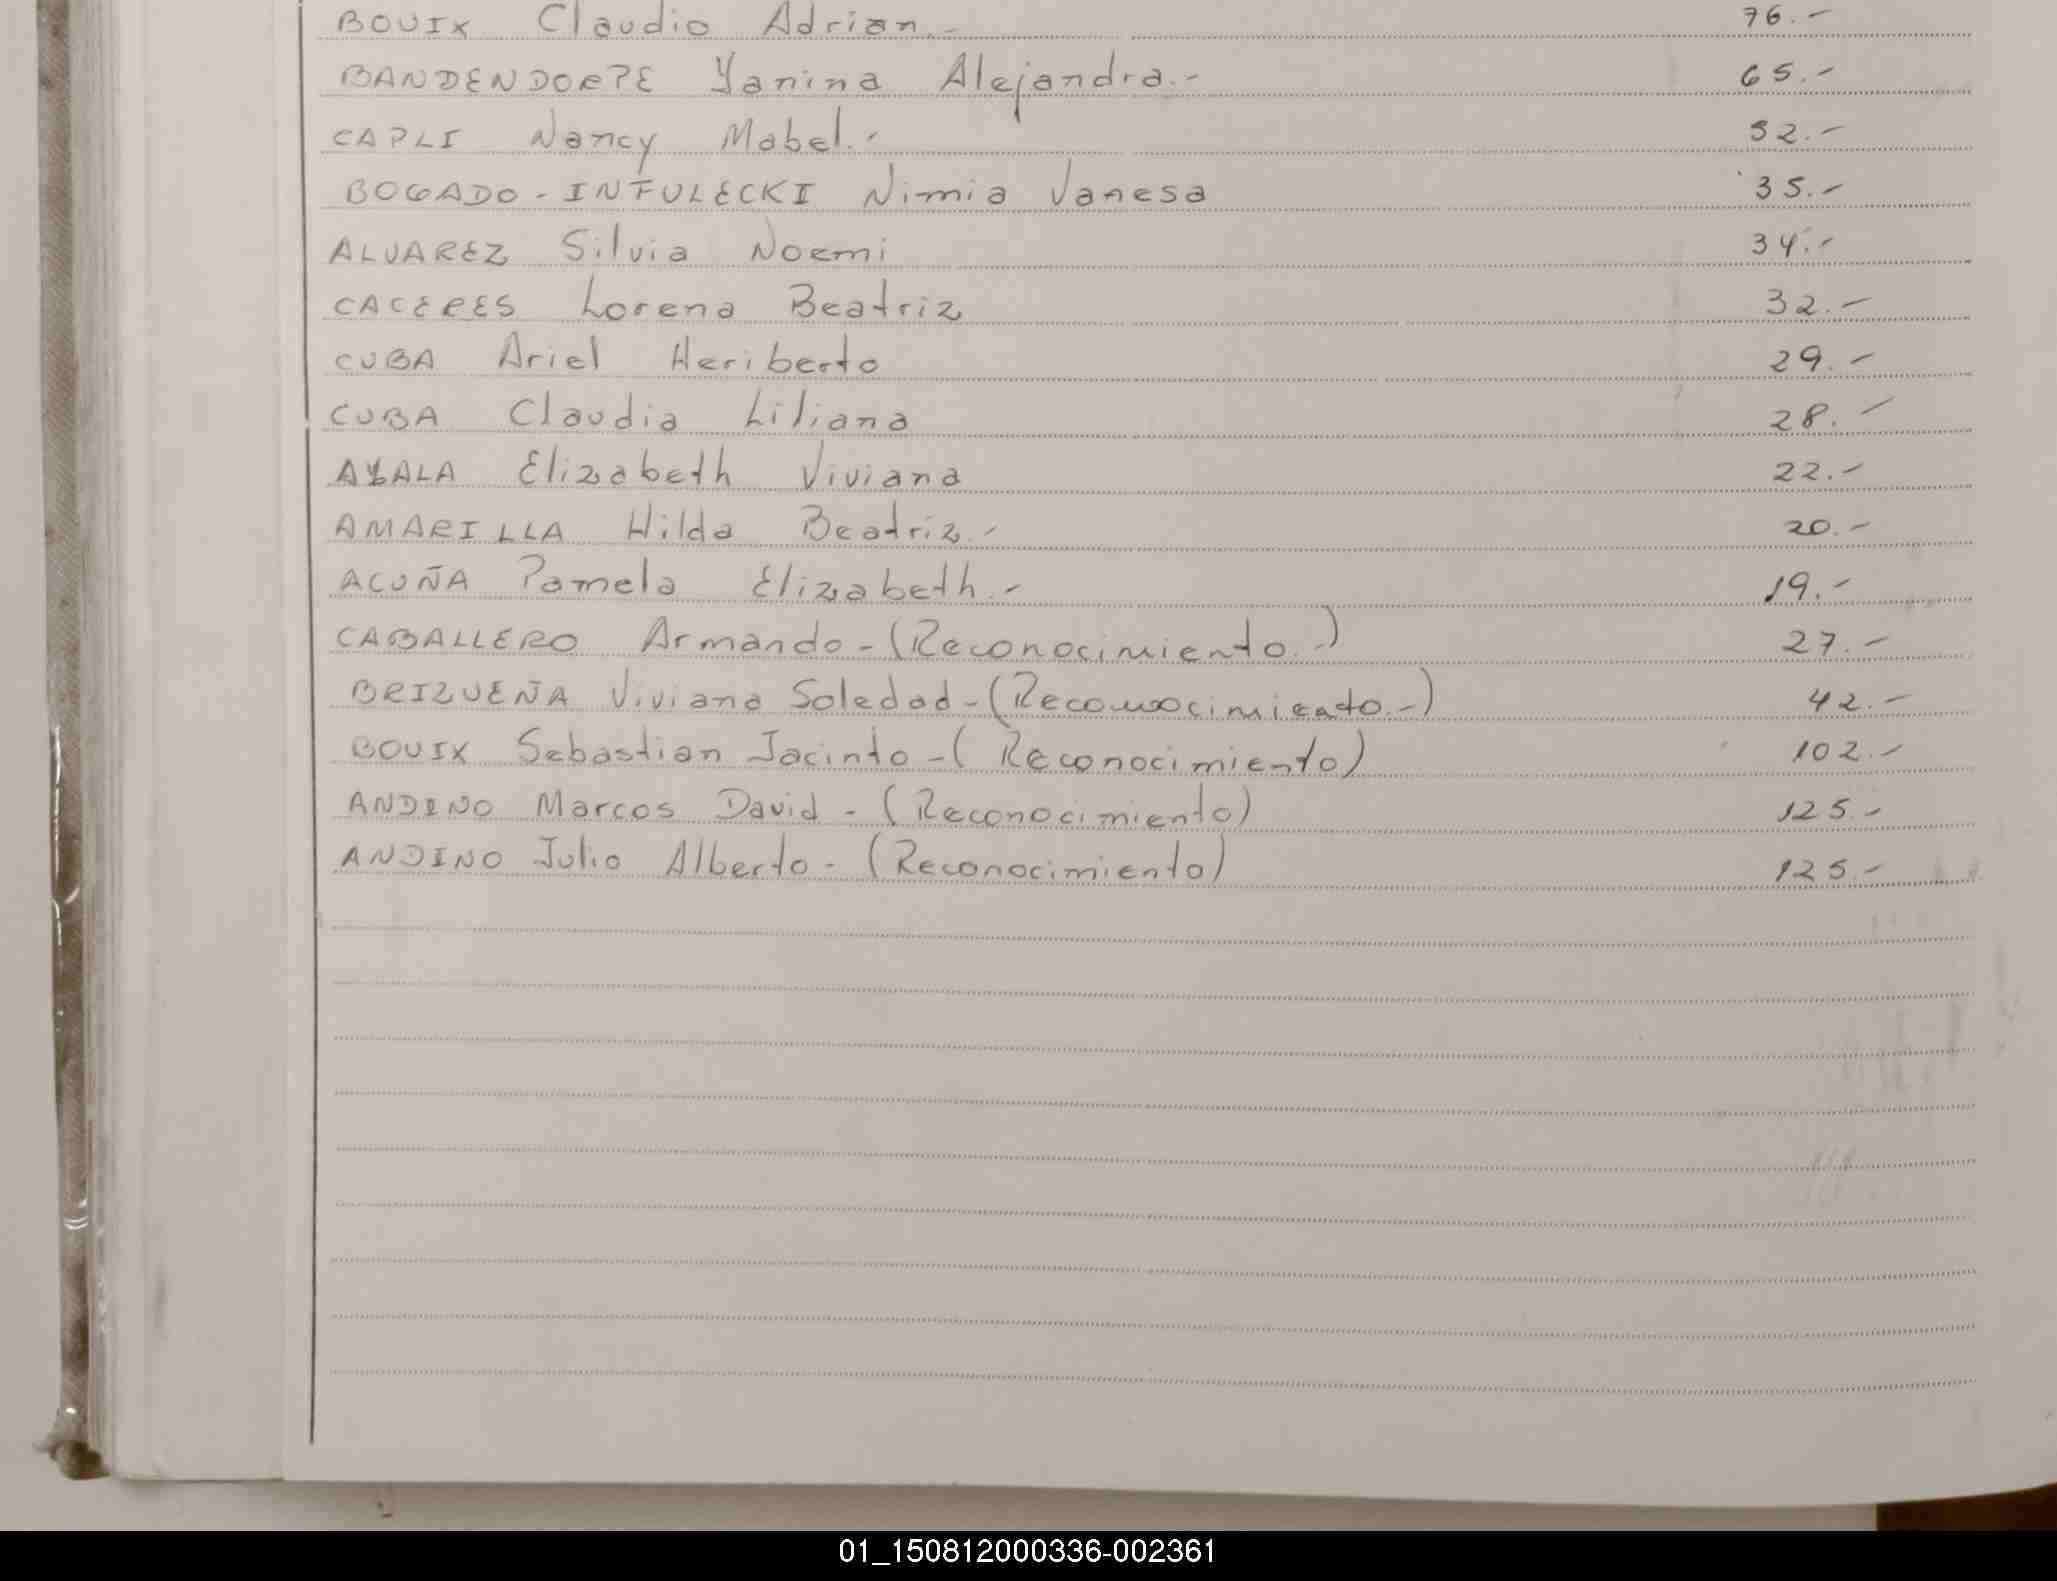 BOUIX Claudio Adrian.- 76.-
BANDENDORPE Yanina Alejandra.- 65.-
CAPLI Nancy Mabel.- 52.-
BOGADO - INFULECKI Nimia Vanesa 35.-
ALVAREZ Silvia Noemi 34.-
CACERES Lorena Beatriz 32.-
CUBA Ariel Heriberto 29.-
CUBA Claudia Liliana 28.-
AYALA Elizabeth Viviana 22.-
AMARILLA Hilda Beatriz.- 20.-
ACUÑA Pamela Elizabeth.- 19.-
CABALLERO Armando - (Reconocimiento.-) 27.-
BRIZUEÑA Viviana Soledad - (Reconocimiento.-) 42.-
BOUIX Sebastian Jacinto - (Reconocimiento) 102.-
ANDINO Marcos David - (Reconocimiento) 125.-
ANDINO Julio Alberto - (Reconocimiento) 125.-
01_150812000336-002361